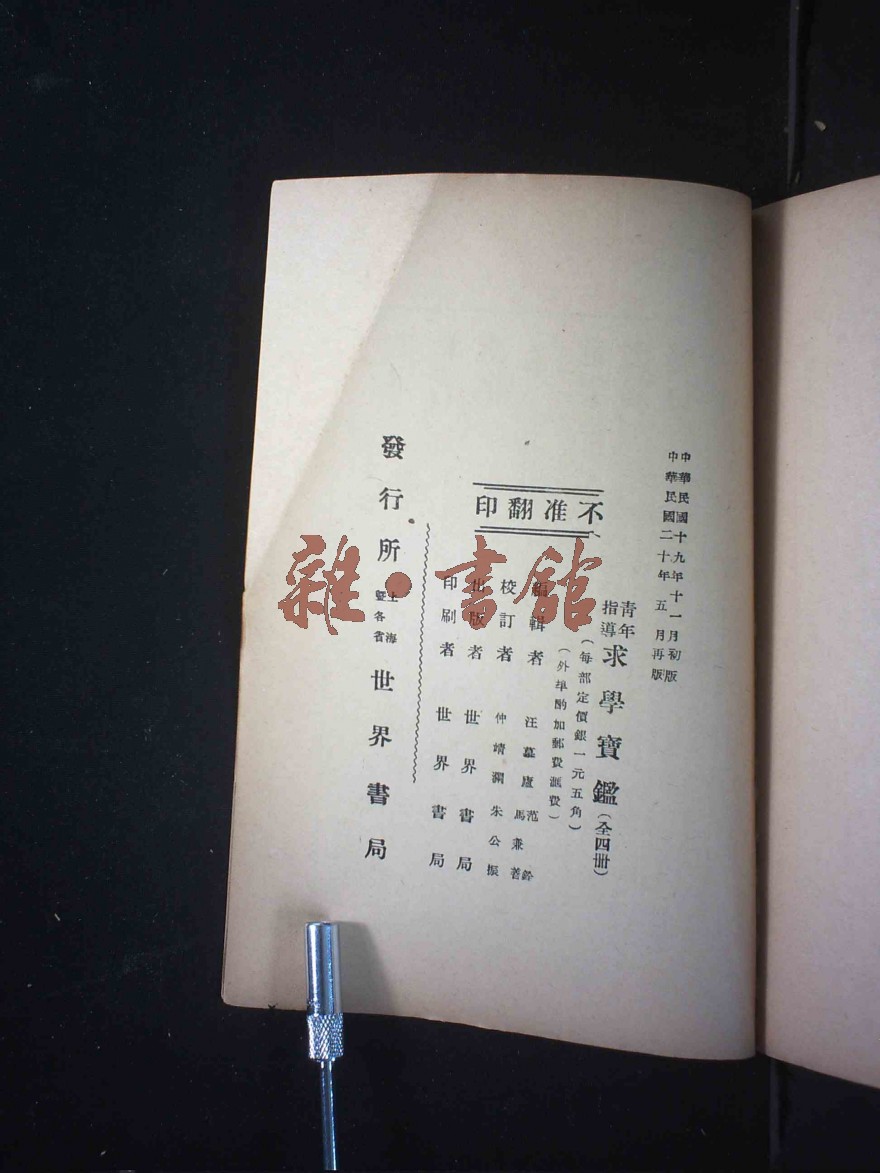 中華民國十九年十一月初版
中華民國二十年五月再版
青年指導求學寶鑑(全四冊)
(每部定價銀一元五角)
(外埠酌加郵費滙費)
不准翻印
編輯者 汪慕廬 范 馬兼善
校訂者 仲靖瀾 朱公振
出版者 世界書局
印刷者 世界書局
發行所 上海暨各省 世界書局
雜·書館